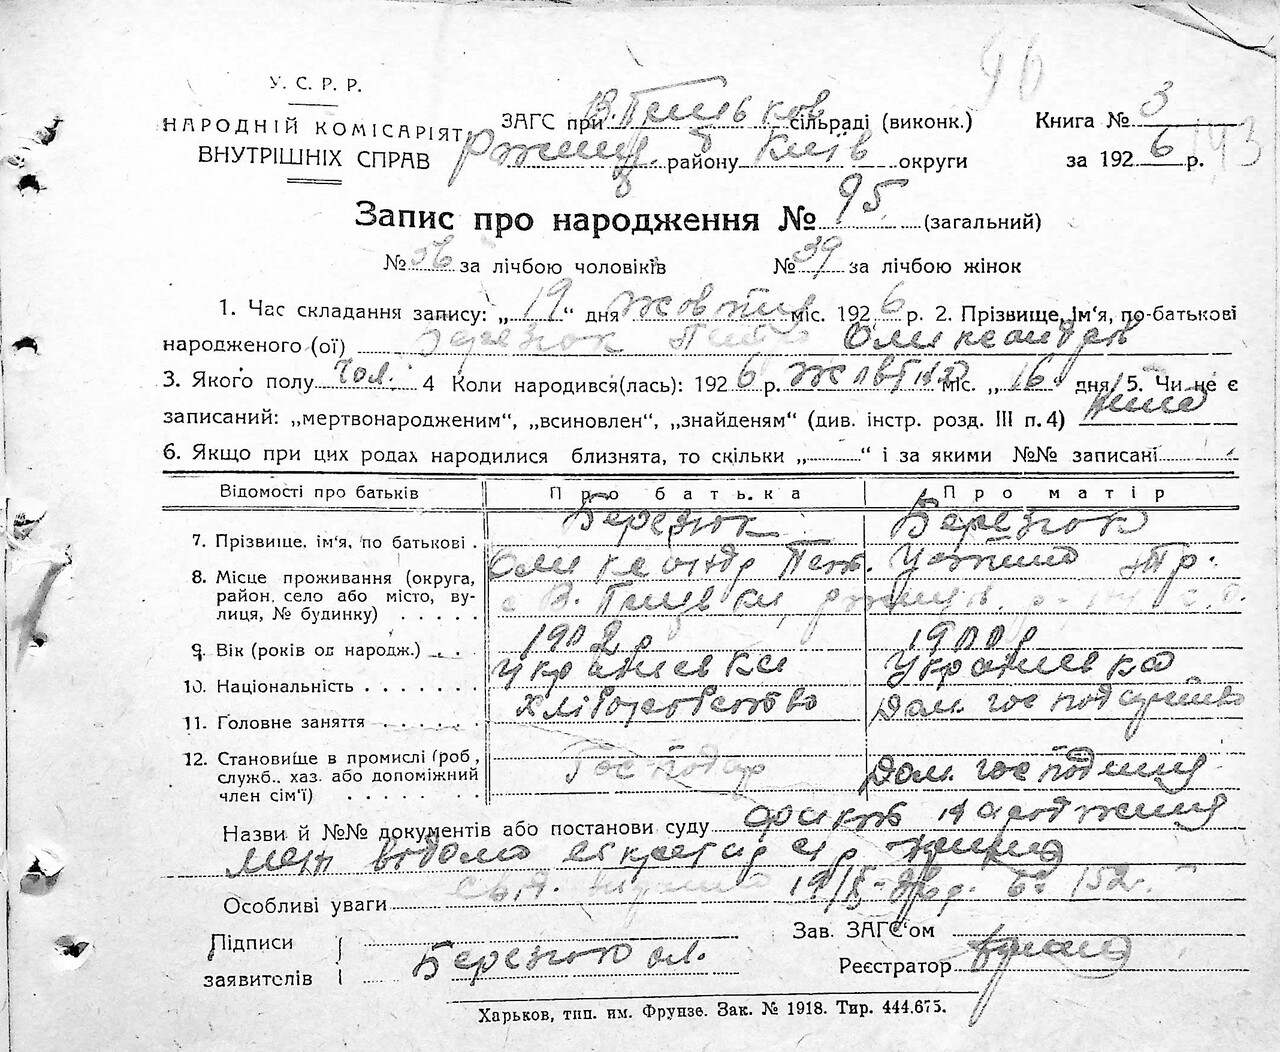 96
У. С. Р. Р.
НАРОДНІЙ КОМІСАРІЯТ
ВНУТРІШНІХ СПРАВ
ЗАГС при В. сільраді (виконк.)
району Київ округи
Книга № 3
за 1926 р.
143
Запис про народження № 95 (загальний)
№ 56 за лічбою чоловіків № 39 за лічбою жінок
1. Час складання запису: „19“ дня жовтня міс. 1926 р. 2. Прізвище, ім‘я, по-батькові
народженого (ої) Березюк Петро Олександр
3. Якого полу чол. 4 Коли народився(лась): 1926 р. жовтня міс. „16“ дня 5. Чи не є
записаний: „мертвонародженим“, „всиновлен“, „знайденям“ (див. інстр. розд. III п. 4)
6. Якщо при цих родах народилися близнята, то скільки „ “ і за якими №№ записані
Відомості про батьків Про батька Про матір
7. Прізвище, ім‘я, по батькові . Березюк Березюк
Олександр Пет.
8. Місце проживання (округа,
район, село або місто, ву-
лиця, № будинку) . . . . .
с В.
9. Вік (років од народж.) . . . 1902 р 1900 р
10. Національність . . . . . . . Українська Українська
11. Головне заняття . . . . . . Хліборобство Дом.
12. Становище в промислі (роб.,
служб., хаз. або допоміжний
член сім‘ї) . . . . . . .
Господар Дом. господиня
Назви й №№ документів або постанови суду факт народження
відомо секретар
Особливі уваги 152
Підписи
заявителів
Березюк Ол.
Зав. ЗАГС‘ом
Реєстратор
Харьков, тип. им. Фрунзе. Зак. № 1918. Тир. 444.675.